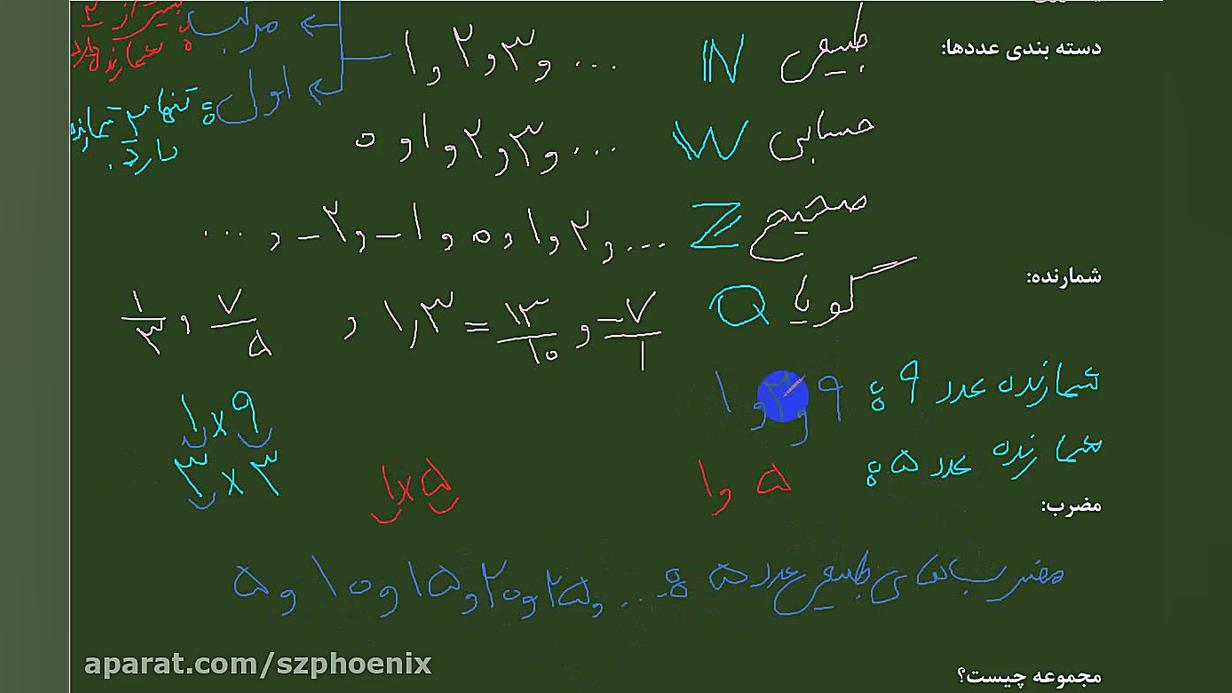 دسته بندی عددها:
طبیعی N ۱ و ۲ و ۳ و ...
مرکب: بیشتر از ۲ شمارنده دارد
اول: تنها ۲ شمارنده دارد.
حسابی W ۰ و ۱ و ۲ و ۳ و ...
صحیح Z ... و ۲ و ۱ و ۰ و -۱ و -۲ و ...
گویا Q ۱/۳ و ۷/۵ و ۱,۳ = ۱۳/۱۰ و -۷/۱
شمارنده:
شمارنده عدد ۹: ۱ و ۳ و ۹
۱×۹
۳×۳
شمارنده عدد ۵: ۱ و ۵
۱×۵
مضرب:
مضرب های طبیعی عدد ۵: ۵ و ۱۰ و ۱۵ و ۲۰ و ۲۵ و ...
aparat.com/szphoenix
مجموعه چیست؟